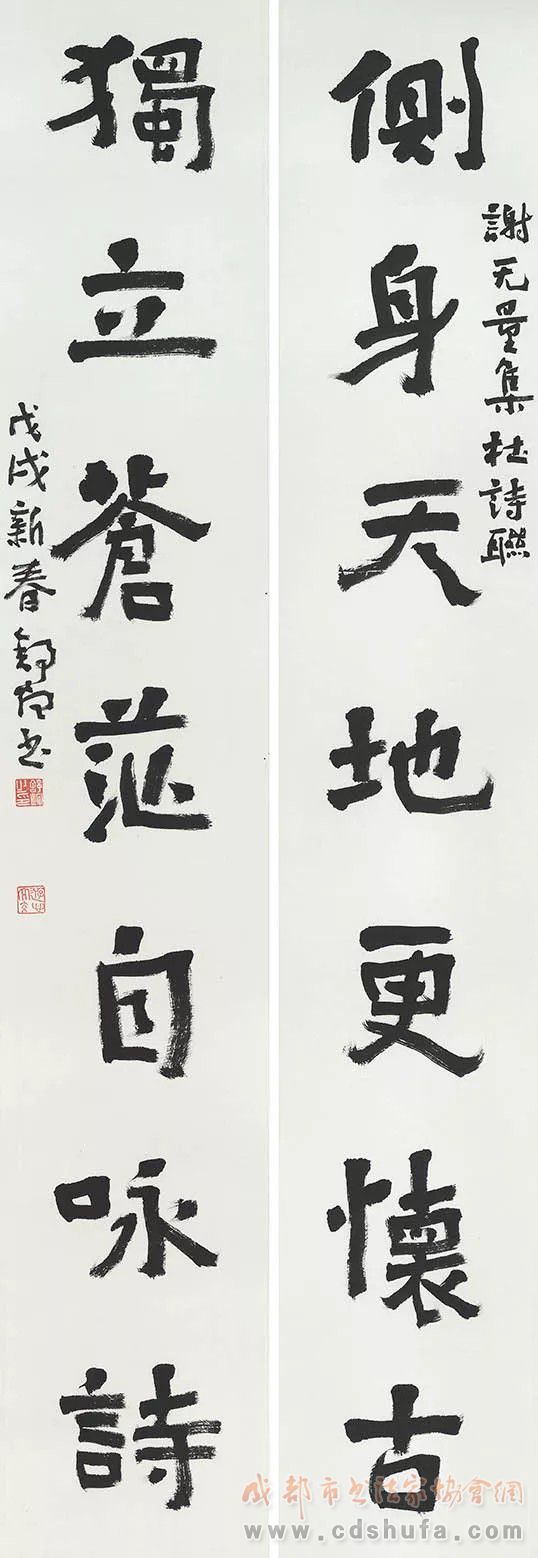 側身天地更懷古
謝无量集杜詩聯
獨立蒼茫自咏詩
戊戌新春舒炯书
成都市书法家协會網
www.cdshufa.com